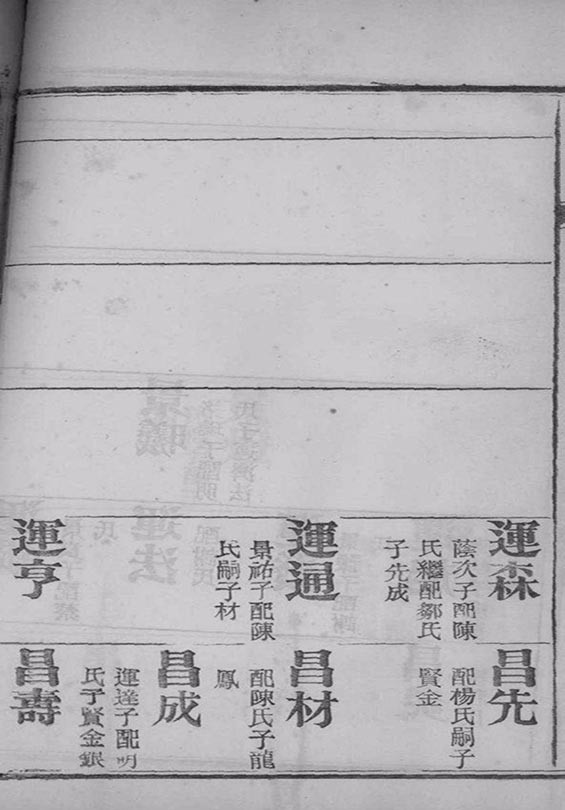 運森
蔭次子配陳
氏繼配鄒氏
子先成
運通
景祐子配陳
氏嗣子材
運亨
昌先
配楊氏嗣子
賢金
昌材
配陳氏子龍
鳳
昌成
運達子配明
氏子賢金銀
昌壽